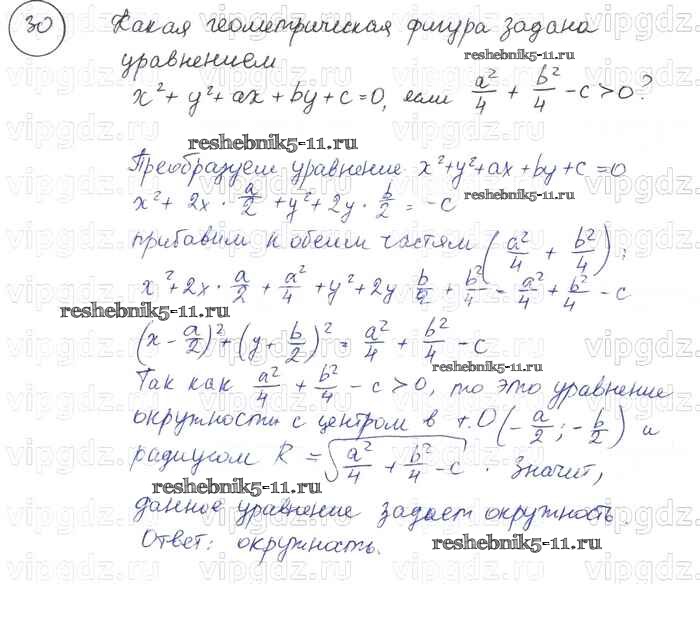 30 Какая геометрическая фигура задана
reshebnik5-11.ru
уравнением
x² + y² + ax + by + c = 0, если a²/4 + b²/4 - c > 0?
reshebnik5-11.ru
Преобразуем уравнение x² + y² + ax + by + c = 0
reshebnik5-11.ru
x² + 2x · a/2 + y² + 2y · b/2 = -c
прибавим к обеим частям (a²/4 + b²/4):
x² + 2x · a/2 + a²/4 + y² + 2y b/2 + b²/4 = a²/4 + b²/4 - c
reshebnik5-11.ru
(x - a/2)² + (y + b/2)² = a²/4 + b²/4 - c
reshebnik5-11.ru
Так как a²/4 + b²/4 - c > 0, то это уравнение
окружности с центром в т. O (-a/2; -b/2) и
радиусом R = √(a²/4 + b²/4 - c). Значит,
reshebnik5-11.ru
данное уравнение задает окружность.
Ответ: окружность.
reshebnik5-11.ru
vipgdz.ru